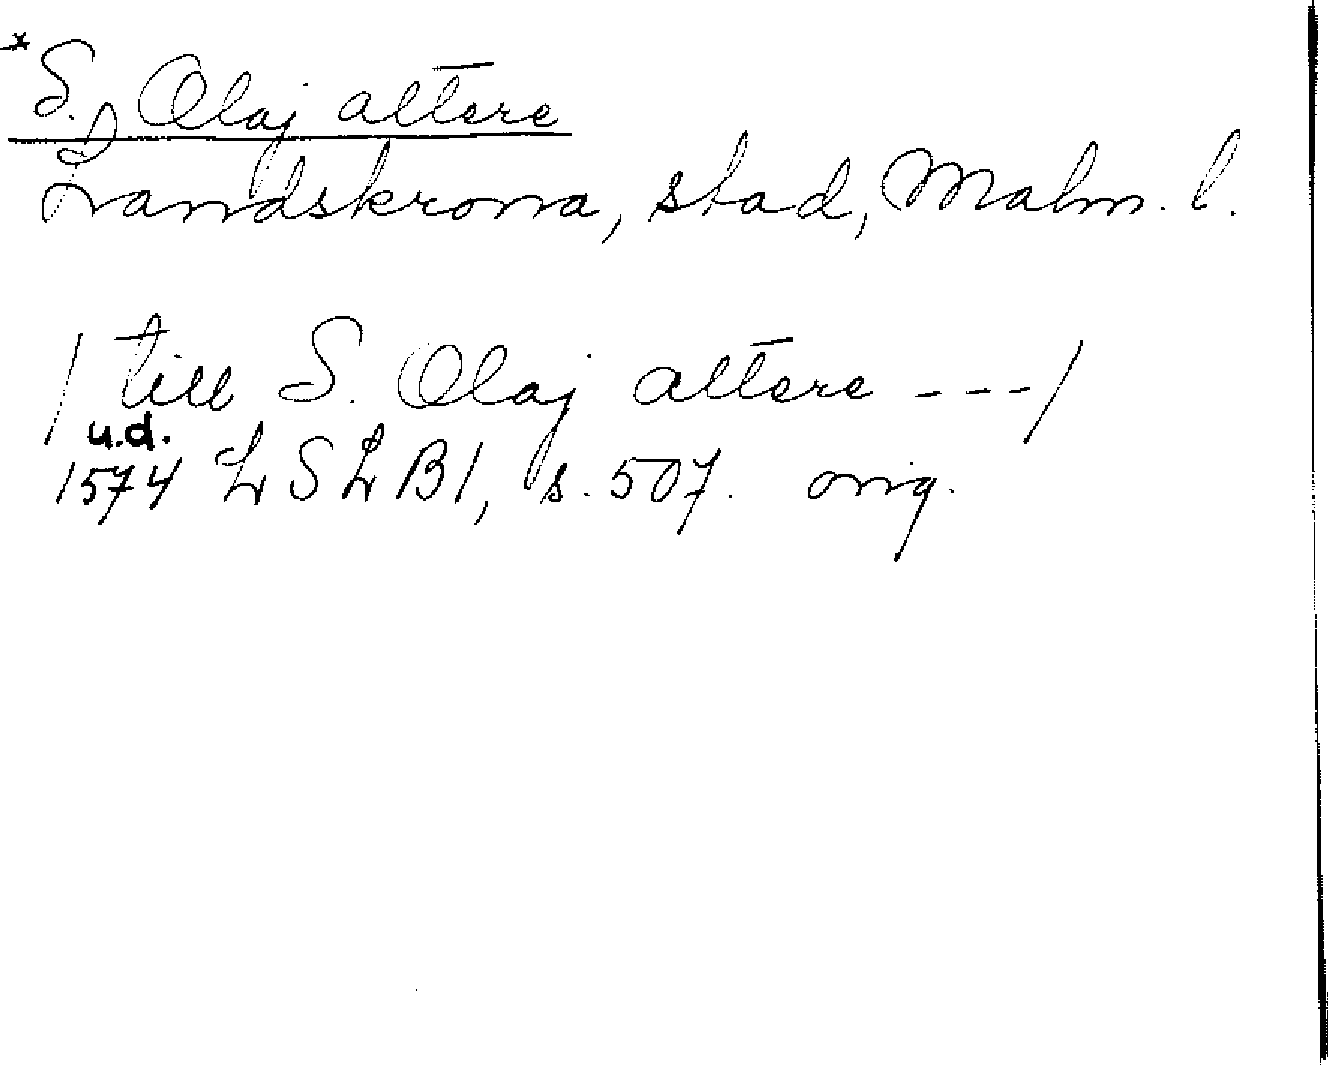 *S. Olaj altere
Landskrona, stad, Malm. l.
/ till S. Olaj altere --- /
u.d.
1574 LSLB1, s. 507. orig.